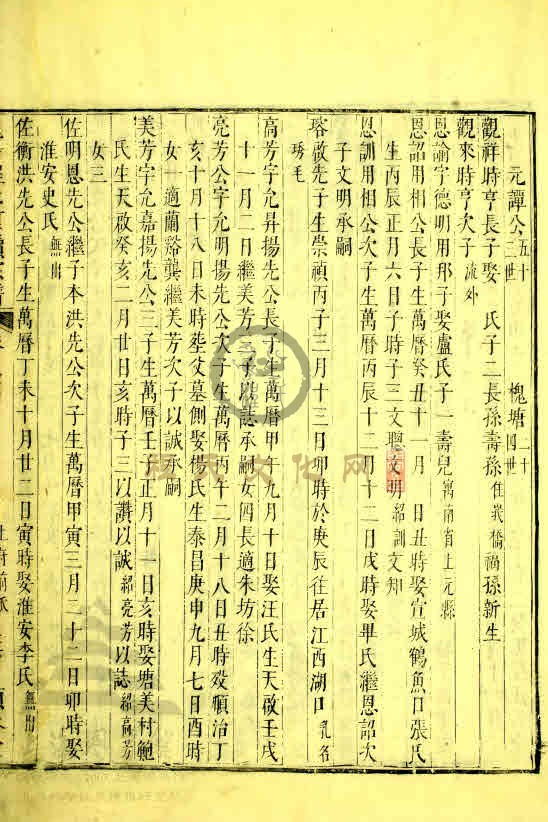 元譚公五十三世 槐塘二十四世
觀祥時亨長子娶 氏子二長孫壽孫住我橋福孫新生
觀來時亨次子流外
恩諭字德明用邦子娶盧氏子一壽兒寓南省上元縣
恩詔用相公長子生萬曆癸丑十一月 日丑時娶宣城鶴魚口張氏
生丙辰正月六日子時子三文聰文明紹訓文知
恩訓用相公次子生萬曆丙辰十二月十二日戌時娶畢氏繼恩詔次
子文明承嗣
啟先子生崇禎丙子三月十三日卯時於庚辰往居江西湖口乳名
毛
高芳字允昇揚先公長子生萬曆甲午九月十日娶汪氏生天啟壬戌
十一月二日繼美芳三子以誌承嗣女四長適朱坊徐
亮芳公字允明揚先公次子生萬曆丙午二月十八日丑時歿順治丁
亥十月十八日未時塟父墓側娶楊氏生泰昌庚申九月七日酉時
女一適蘭谿龔繼美芳次子以誠承嗣
美芳字允嘉揚先公三子生萬曆壬 正月十一日亥時娶塘美村鮑
氏生天啟癸亥二月廿日亥時子三以讚以誠紹亮芳以誌紹高芳
女三
佐明恩先公繼子本洪先公次子生萬曆甲寅三月二十二日卯時娶
淮安史氏無出
佐衡洪先公長子生萬曆丁未十月廿二日寅時娶淮安李氏無出